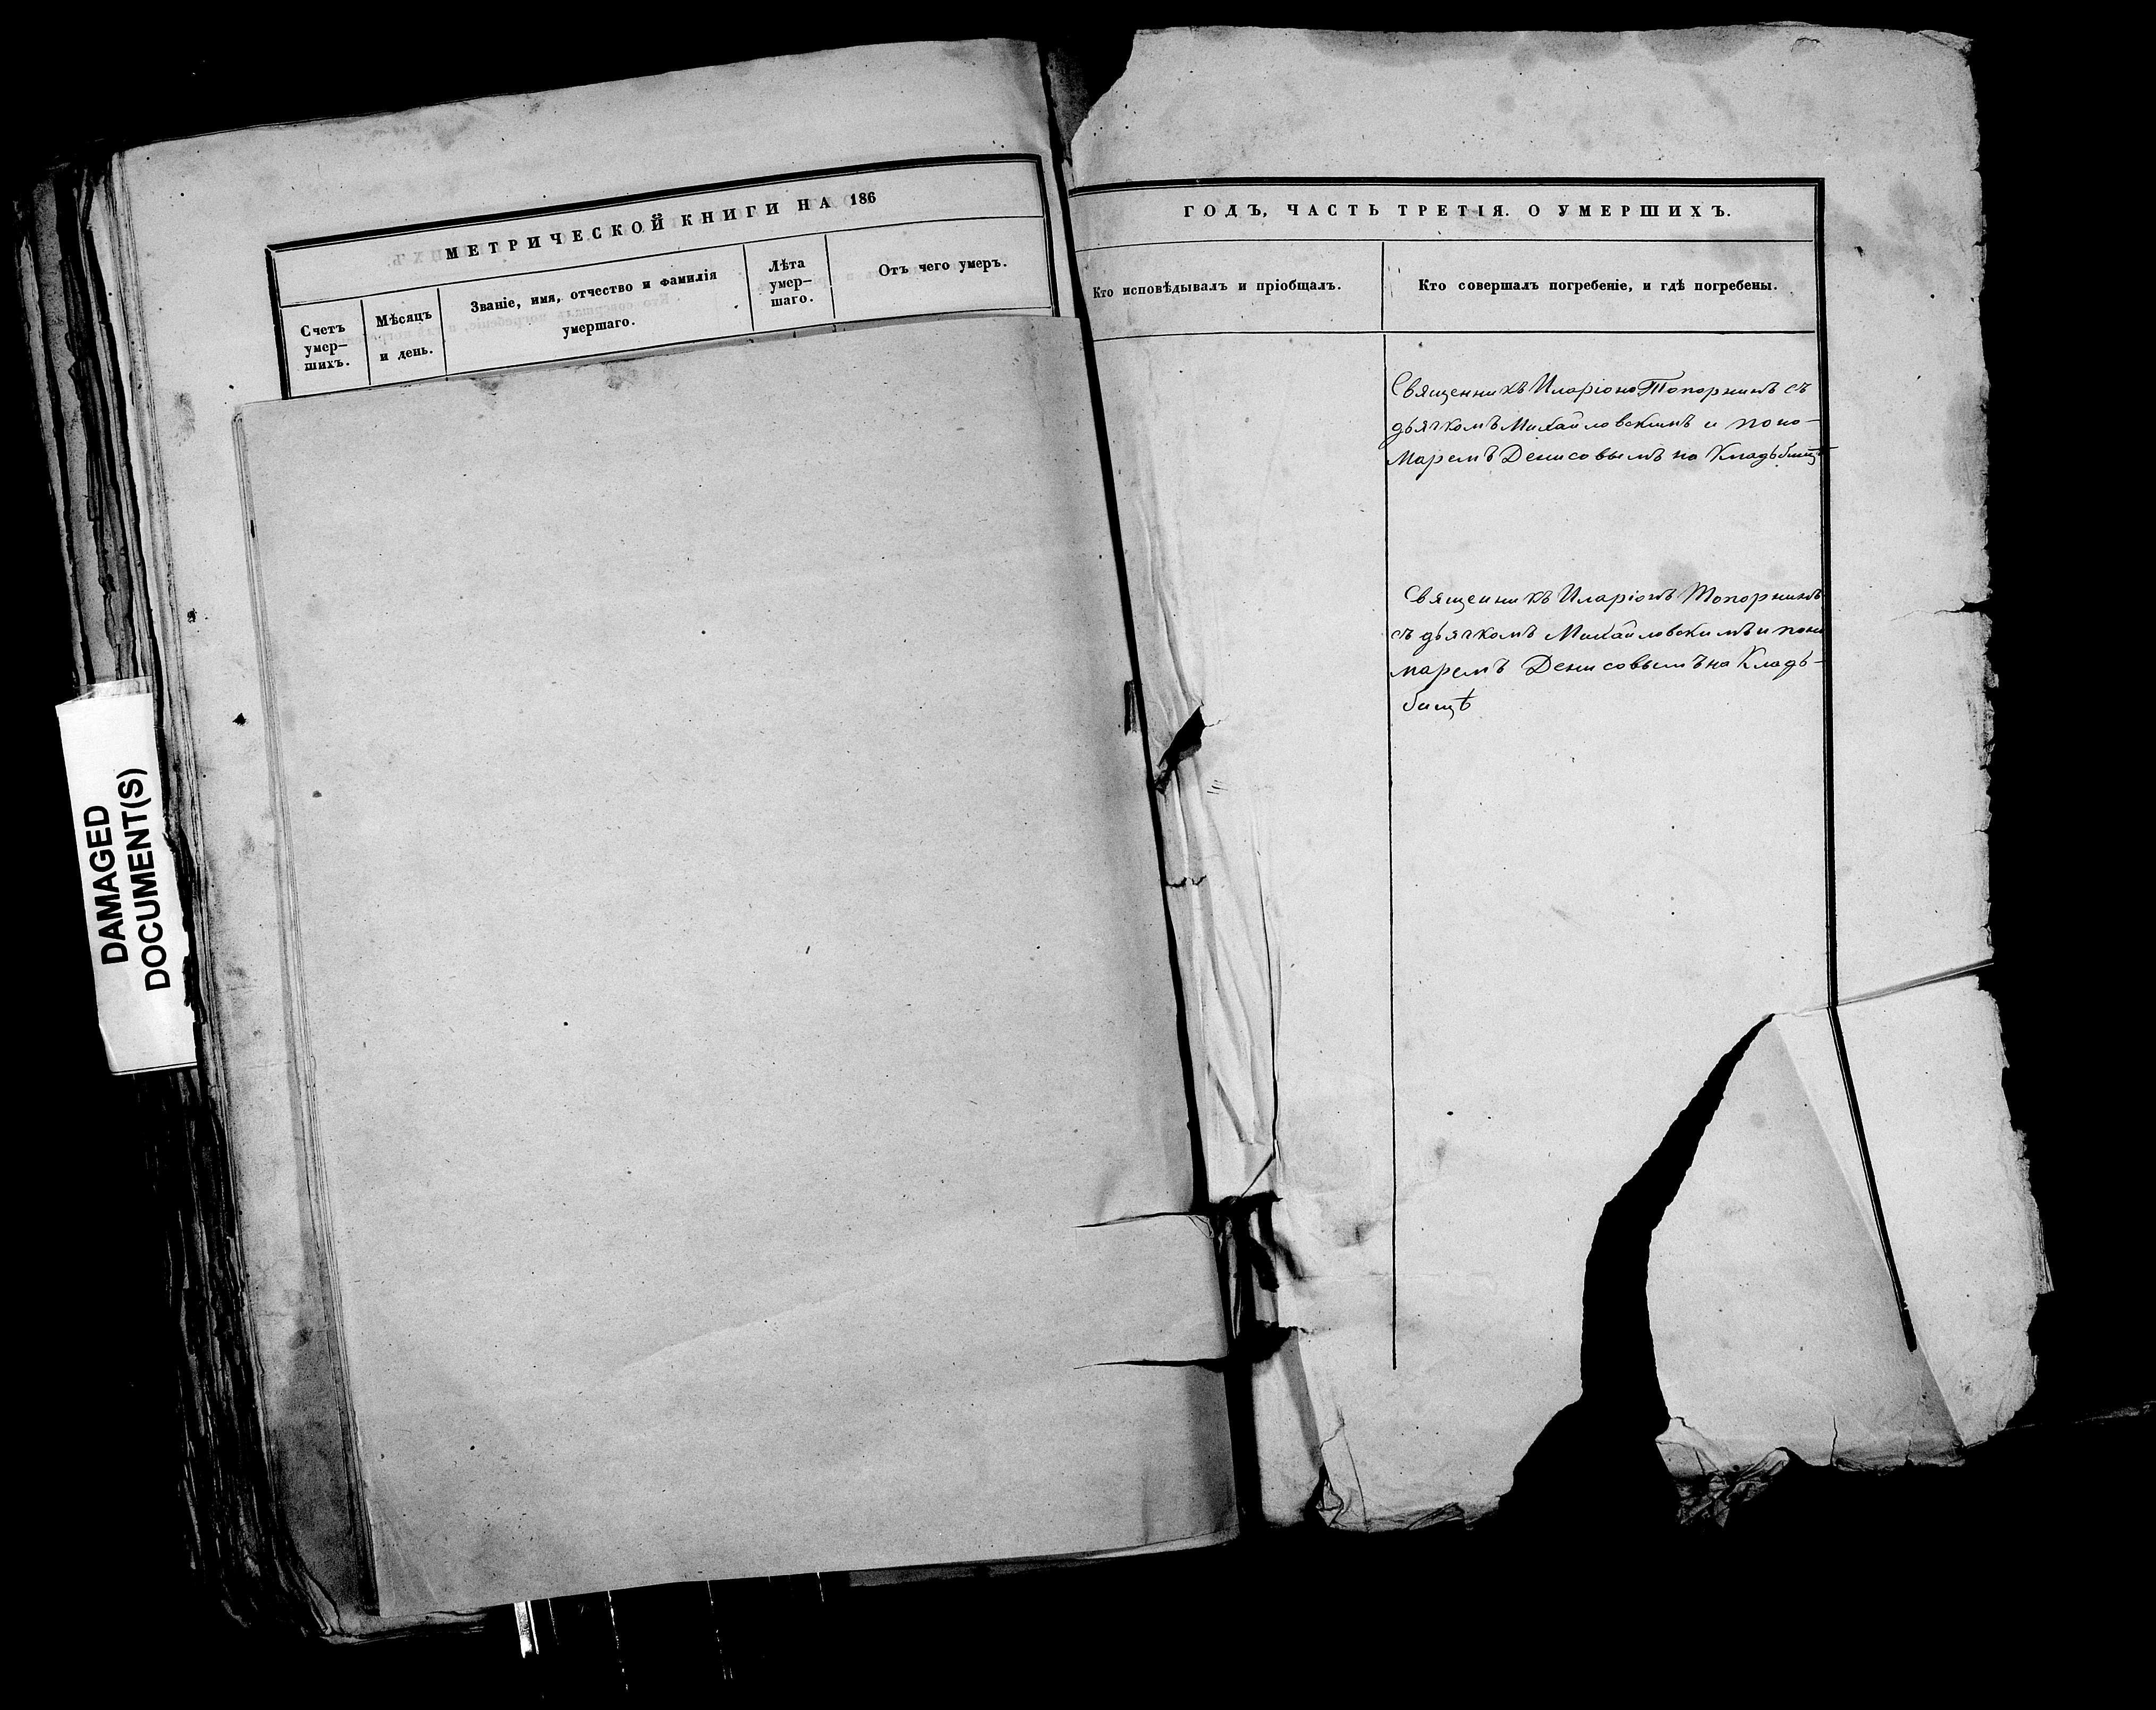 МЕТРИЧЕСКОЙ КНИГИ НА 186
Счетъ
умер–
шихъ.
Мѣсяцъ
и день.
Званіе, имя, отчество и фамилія
умершаго.
Лѣта
умер–
шаго.
Отъ чего умеръ.
ГОДЪ, ЧАСТЬ ТРЕТІЯ. О УМЕРШИХЪ.
Кто исповѣдывалъ и пріобщалъ.
Кто совершалъ погребеніе, и гдѣ погребены.
Священникъ Иларіонъ Топорнинъ съ
дьячкомъ Михайловскимъ и поно–
маремъ Денисовымъ на Кладьбищѣ
Священникъ Иларіонъ Топорнинъ
съ дьячкомъ Михайловскимъ и поно
маремъ Денисовымъ на Кладь–
бищѣ
DAMAGED
DOCUMENT(S)